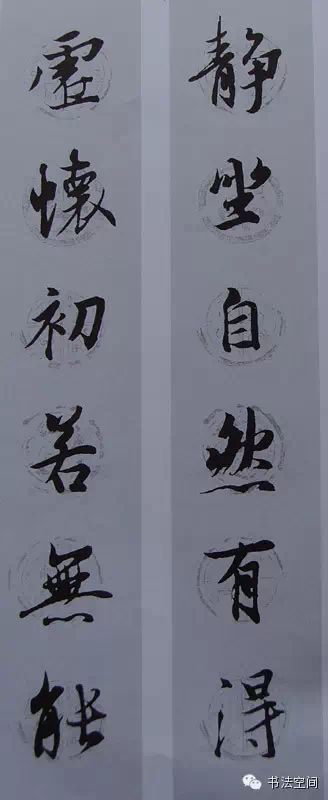 静坐自然有得
虚懷初若無能
书法空间